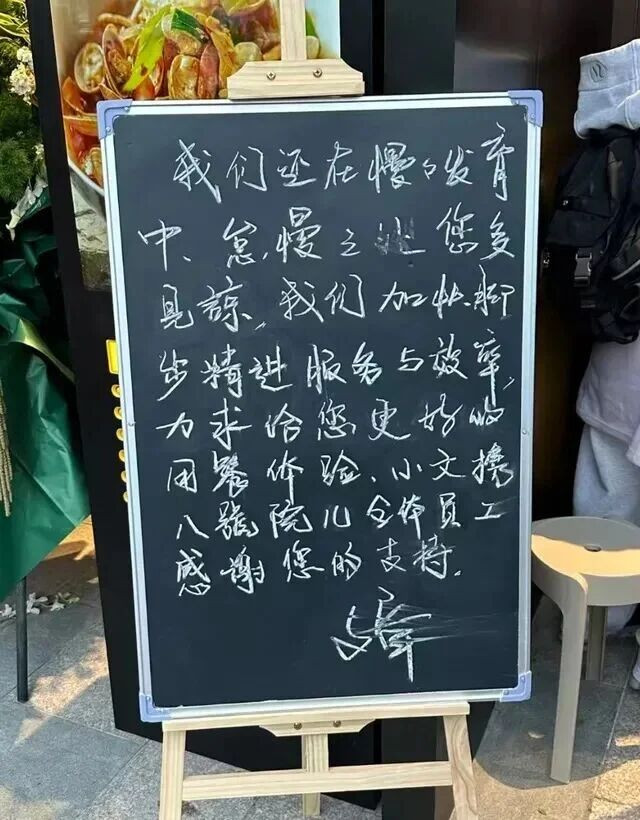 我们还在慢々发育
中、怠慢之处您多
見諒,我们加快腳
步精进服务与效率,
力求给您更好的
用餐体验.小文携
八號院儿全体员工
感谢您的支持.